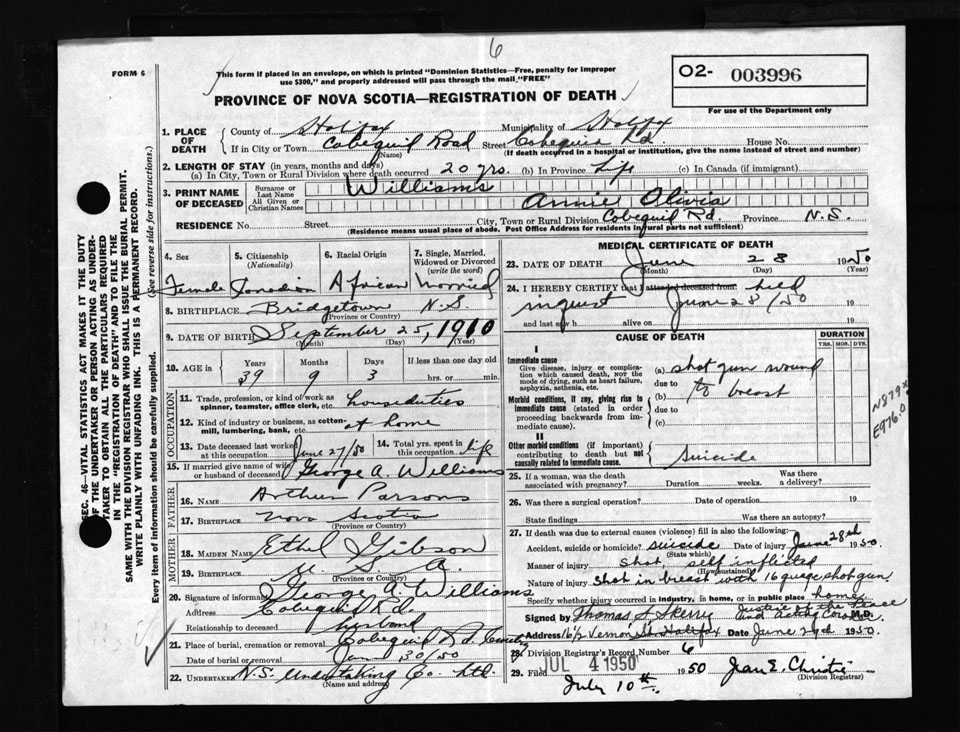 6
FORM 6
This form if placed in an envelope, on which is printed "Dominion Statistics—Free, penalty for improper
use $300," and properly addressed will pass through the mail "FREE"
O2- 003996
For use of the Department only
PROVINCE OF NOVA SCOTIA—REGISTRATION OF DEATH
SEC. 46—VITAL STATISTICS ACT MAKES IT THE DUTY
OF THE UNDERTAKER OR PERSON ACTING AS UNDER-
TAKER TO OBTAIN ALL THE PARTICULARS REQUIRED
IN THE "REGISTRATION OF DEATH" AND TO FILE THE
SAME WITH THE DIVISION REGISTRAR WHO SHALL ISSUE THE BURIAL PERMIT.
WRITE PLAINLY WITH UNFADING INK. THIS IS A PERMANENT RECORD.
Every item of information should be carefully supplied. (See reverse side for instructions.)
1. PLACE OF DEATH County of Halifax Municipality of Halifax
If in City or Town Cobequid Road (Name) Street Cobequid Rd House No.
(If death occurred in a hospital or institution, give the name instead of street and number)
2. LENGTH OF STAY (in years, months and days)
(a) In City, Town or Rural Division where death occurred 20 yrs. (b) In Province Life (c) In Canada (if immigrant)
3. PRINT NAME OF DECEASED Surname or Last Name Williams
All Given or Christian Names Annie Olivia
RESIDENCE No. Street City, Town or Rural Division Cobequid Rd. Province N.S.
(Residence means usual place of abode. Post Office Address for residents in rural parts not sufficient)
4. Sex Female
5. Citizenship (Nationality) Canadian
6. Racial Origin African
7. Single, Married, Widowed or Divorced (write the word) Married
8. BIRTHPLACE Bridgetown N.S.
(Province or Country)
9. DATE OF BIRTH September 25, 1910
(Month) (Day) (Year)
10. AGE in Years 39 Months 9 Days 3 If less than one day old hrs. or min.
OCCUPATION
11. Trade, profession, or kind of work as spinner, teamster, office clerk, etc. houseduties
12. Kind of industry or business, as cotton-mill, lumbering, bank, etc. at home
13. Date deceased last worked at this occupation June 27/50
14. Total yrs. spent in this occupation Life
15. If married give name of wife or husband of deceased George A. Williams
FATHER
16. NAME Arthur Parsons
17. BIRTHPLACE Nova Scotia
(Province or Country)
MOTHER
18. MAIDEN NAME Ethel Gibson
19. BIRTHPLACE U. S. A.
(Province or Country)
20. Signature of informant George A. Williams
Address Cobequid Rd.
Relationship to deceased husband
21. Place of burial, cremation or removal Cobequid Rd.
Date of burial or removal June 30/50
22. UNDERTAKER N.S. Undertaking Co. Ltd.
(Name and address)
MEDICAL CERTIFICATE OF DEATH
23. DATE OF DEATH June 28 1950
(Month) (Day) (Year)
24. I HEREBY CERTIFY that I attended deceased from held
inquest June 28/50 19
and last saw h alive on 19
CAUSE OF DEATH
DURATION
YRS. MOS. DYS.
I
Immediate cause
Give disease, injury or complication which caused death, not the mode of dying, such as heart failure, asphyxia, asthenia, etc.
(a) shot gun wound
due to
Morbid conditions, if any, giving rise to immediate cause (stated in order proceeding backwards from immediate cause).
(b) to breast
due to
(c)
N879
E976.0
II
Other morbid conditions (if important) contributing to death but not causally related to immediate cause. Suicide
25. If a woman, was the death associated with pregnancy? Duration weeks. Was there a delivery?
26. Was there a surgical operation? Date of operation 19
State findings Was there an autopsy?
27. If death was due to external causes (violence) fill in also the following:
Accident, suicide or homicide? suicide Date of injury June 28th 1950.
(State which)
Manner of injury shot, self inflicted
(How sustained)
Nature of injury shot in breast with 16 guage shot gun
Specify whether injury occurred in industry, in home, or in public place home
Justice of the Peace
Signed by Thomas and Acting Coroner M.D.
Address Vernon St. Halifax Date June 29d 1950.
28. Division Registrar's Record Number 6
JUL 4 1950
29. Filed July 10th. 1950 Jean E. Christie
(Division Registrar)